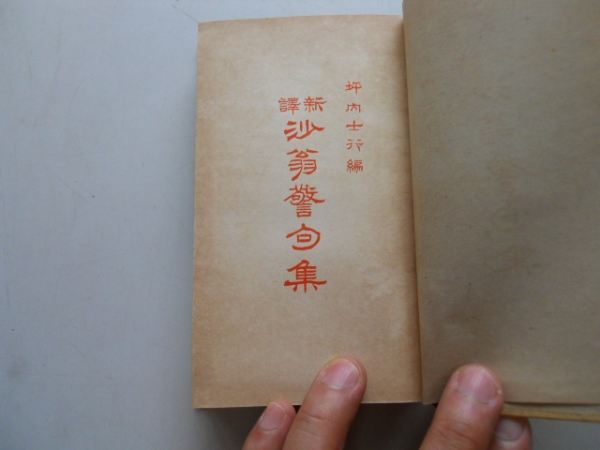 坪内士行編
新譯
沙翁警句集